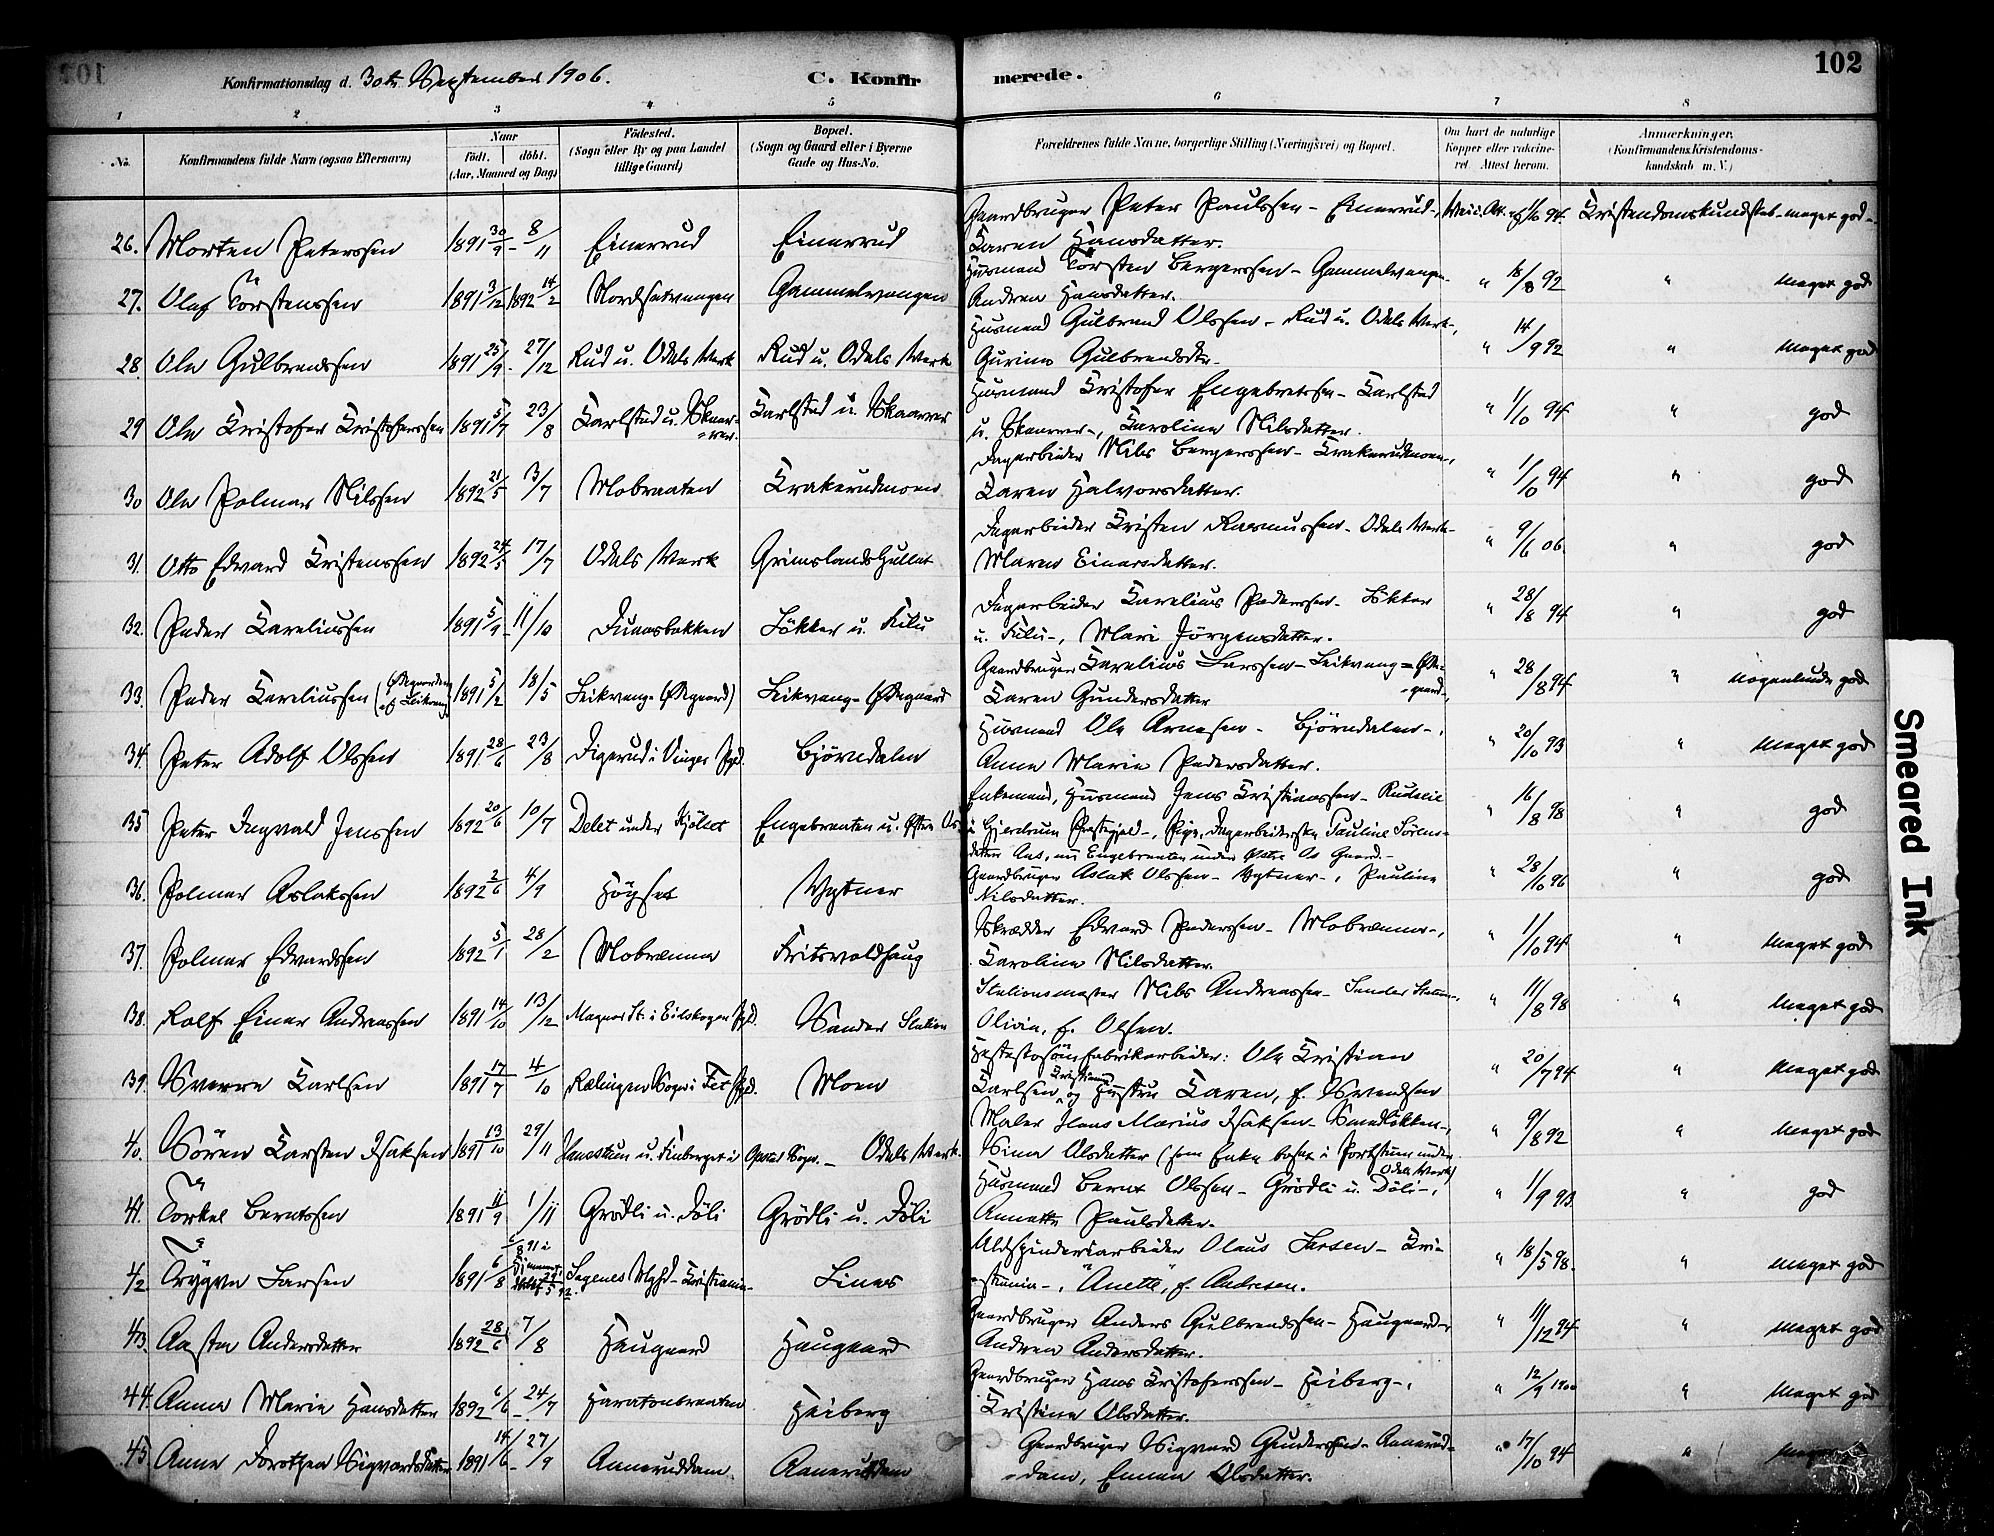 102
Konfirmationsdag d. 30te September 1906.
C. Konfirmerede.
1 2 3 4 5 6 7 8
No. Konfirmandens fulde Navn (ogsaa Efternavn) Naar födt. döbt. (Aar, Maaned og Dag) Födested. (Sogn eller By og paa Landet tillige Gaard) Bopæl. (Sogn og Gaard eller i Byerne Gade og Hus-No. Forældrenes fulde Navne, borgerlige Stilling (Næringsvei) og Bopæl. Om havt de naturlige Kopper eller vaccineret Attest herom. Anmærkninger. (Konfirmandens Kristendomskundskab m. V.)
26. Morten Peterssen 1891 30/9 - 8/11 Einerrud Einerrud Gaardbruger Peter Paulssen - Einerrud-, Karen Hansdatter. 1/10 94. Kristendomskundskab - meget god -
27. Olaf Torstenssen 1891 3/12 1892 14/2 Nordsetvangen Gammelvangen Husmand Torsten Bergerssen - Gammelvangen- Andrea Hansdatter. " 18/8 92 " meget god
28. Ole Gulbrandssen 1891 25/9 - 27/12 Rud u. Odals Værk Rud u. Odals Værk Husmand Gulbrand Olssen - Rud u. Odals Værk-, Gurine Gulbrandsdtr. " 14/9 92 " meget god
29 Ole Kristofer Kristoferssen 1891 5/7 23/8 Karlstad u. Skaarer Karlstad u. Skaarer Husmand Kristofer Engebretssen - Karlstad u. Skaarer-, Karoline Nilsdatter. " 1/10 94 " god
30 Ole Polmar Nilssen 1892 21/5 3/7 Mobraaten Krakerudmoen Dagarbeider Nils Bergerssen - Krakerudmoen-, Karen Halvorsdatter. " 1/10 94 " god
31. Otto Edvard Kristenssen 1892 24/5 17/7 Odals Værk Grimslandshullet Dagarbeider Kristen Rasmussen - Odals Værk- Maren Einarsdatter. " 9/6 06. " god
32. Peder Kareliussen 1891 5/9 - 11/10 Lökker u. Filu Dagarbeider Karelius Pederssen - Lökker u. Filu-, Mari Jörgensdatter. " 28/8 94 " god
33. Peder Kareliussen 1891 5/2 18/5 Leikvang- (Ødegaard) Leikvang- Ødegaard Gaardbruger Karelius Larssen - Leikvang = Ødegaard-, Karen Gundersdatter " 28/8 94 " nogenlunde god
34. Peter Adolf Olssen 1891 28/6 23/8 Digerud i Vinger Pgd. Björndalen Husmand Ole Arnesen - Björndalen-, Anne Marie Pedersdatter. " 20/10 93 " meget god
35 Peter Ingvald Jenssen 1892 20/6 10/7 Delet under Kjölset Engebraaten u. Østre Os Enkemand, Husmand Jens Kristianssen - i Gjerdrum Prestegjeld-, Pige, Dagarbeiderske Pauline Sörensdatter Aas, nu Engebraaten under Østre Os Gaard.- " 16/8 98 " god
36. Polmar Aslakssen 1892 2/6 4/9 Höyset Vgtner Gaardbruger Aslak Olssen - Vgtner-, Pauline Nilsdatter. " 28/10 96 " god
37. Polmar Edvardssen 1892 5/1 28/2 Mobrænna Fritsvoldhaug Skrædder Edvard Pederssen - Mobrænna-, Karoline Nilsdatter. " 1/10 94 " meget god
38. Rolf Einar Andreassen 1891 14/10 13/12 Magnor St. i Eidskogen Pgd. Sander Station Stationsmester Nils Andreassen - Sander Station-, Olivia, f. Olsen. " 11/8 98 " meget god
39. Sverre Karlsen 1891 17/7 4/10 Rælingen Sogn i Fet Pgd. Moen Hesteskosömfabrikarbeider: Ole Kristian Karlsen, Kristiania og Hustru Karen, f. Svendsen " 20/7 94 " meget god
40. Sören Karsten Isaksen 1891 13/10 29/11 Opstad Sogn. - Odals Værk. Maler Hans Marius Isaksen - Sandlökken-, Sina Olsdatter (som Enke bosat i Portstuen under Odals Værk) " 9/8 92 " meget god
41. Torkel Berntssen 1891 11/9 1/11 Grödli u. Döli Grödli u. Döli Husmand Bernt Olssen - Grödli u. Döli-, Annette Paulsdatter. " 1/9 93 " god
42. Trygve Larsen 1891 6/8 Sagenes Mghd - Kristiania- Linæs Uldspinderiarbeider Olaus Larsen - Kristiania-, "Anette", f. Andresen. " 18/5 98. " meget god
43. Aasta Andersdatter 1892 28/6 7/8 Haugaard Haugaard Gaardbruger Anders Gulbrandssen - Haugaard-, Andrea Andersdatter. " 11/12 94 " meget god
44. Anna Marie Hansdatter 1892 6/6 - 24/7 Haratonbraaten Heiberg Gaardbruger Hans Kristoferssen - Heiberg-, Kristine Olsdatter. " 12/9 1900 " meget god
45. Anna Dorothea Sigvardsdatter 1891 14/6 - 27/9 Aaneruddam Aaneruddam Gaardbruger Sigvard Gunderssen - Aaneruddam, Emma Olsdatter. " 17/10 94 " meget
Smeared Ink